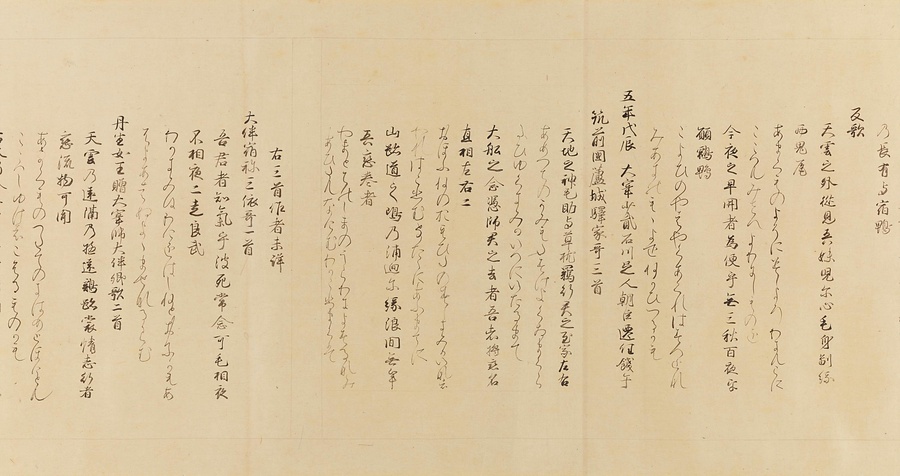 乃長有与宿鴨
反歌
天雲之外従見吾妹児尓心毛身副縁
西鬼尾
あまくものよそにみしより わきもこに
こころもみさへよりにしものを
今夜之早開者為便乎無三秋百夜乎
願鶴鴨
こよひのやはやくあくれはすへをなみ
五年戊辰 大宰少貳石川足人朝臣遷任餞于
筑前國蘆城驛家哥三首
天地之神毛助与草枕羈行君之至家左右
あめつちのかみもたすけよくさまくら
たひゆくきみかいへにいたるまて
大船之念憑師君之去者吾者将戀名
直相左右二
おほふねのおもひたのみしきみかいなは
われはこひむなたたにあふまてに
山跡道之嶋乃浦廻尓縁浪間無牟
吾戀巻者
やまとちのしまのうらわによするなみ
あひたもなけむわかこひまくは
右三首作者未詳
大伴宿祢三依哥一首
吾君者和氣乎波死常念可毛相夜
不相夜二走良武
丹生女王贈大宰帥大伴卿歌二首
天雲乃遠隔乃極遠鷄跡裳情志行者
戀流物可聞
こころしゆけはこふるものかも